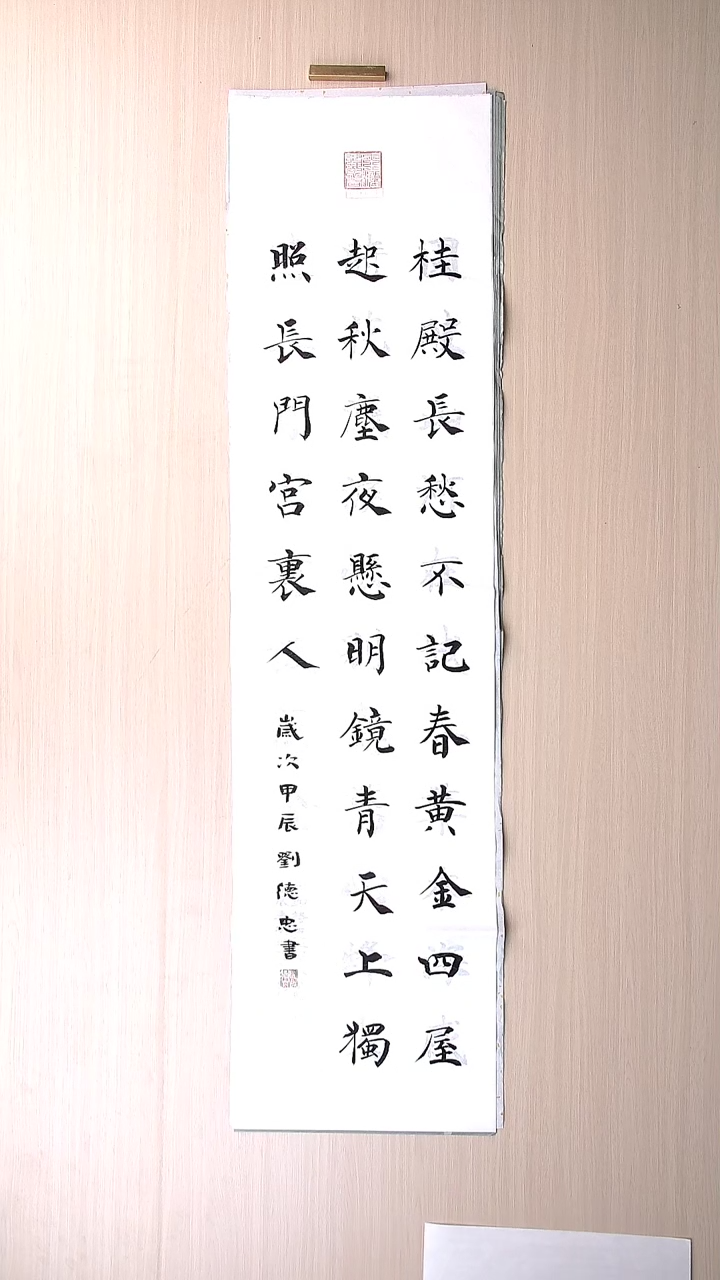 桂殿長愁不記春黃金四屋
起秋塵夜懸明鏡青天上獨
照長門宮裏人
歲次甲辰劉德忠書